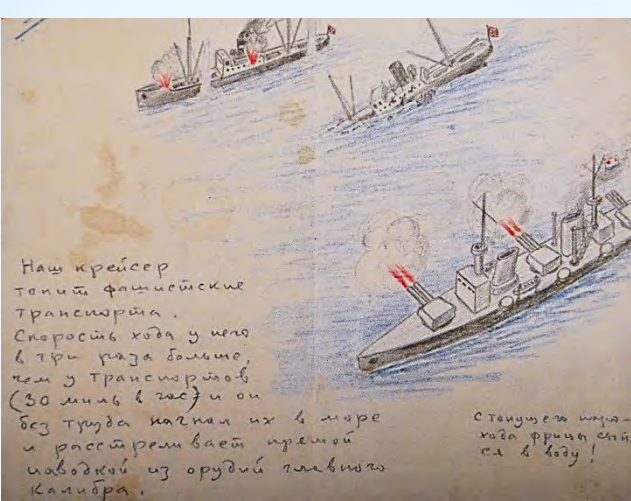 Наш крейсер
топит фашистские
транспорта.
Скорость хода у него
в три раза больше,
чем у транспортов
(30 миль в час) и он
без труда нагнал их в море
и расстреливает прямой
наводкой из орудий главного
калибра.
С тонущего паро-
хода фрицы сып
ся в воду!